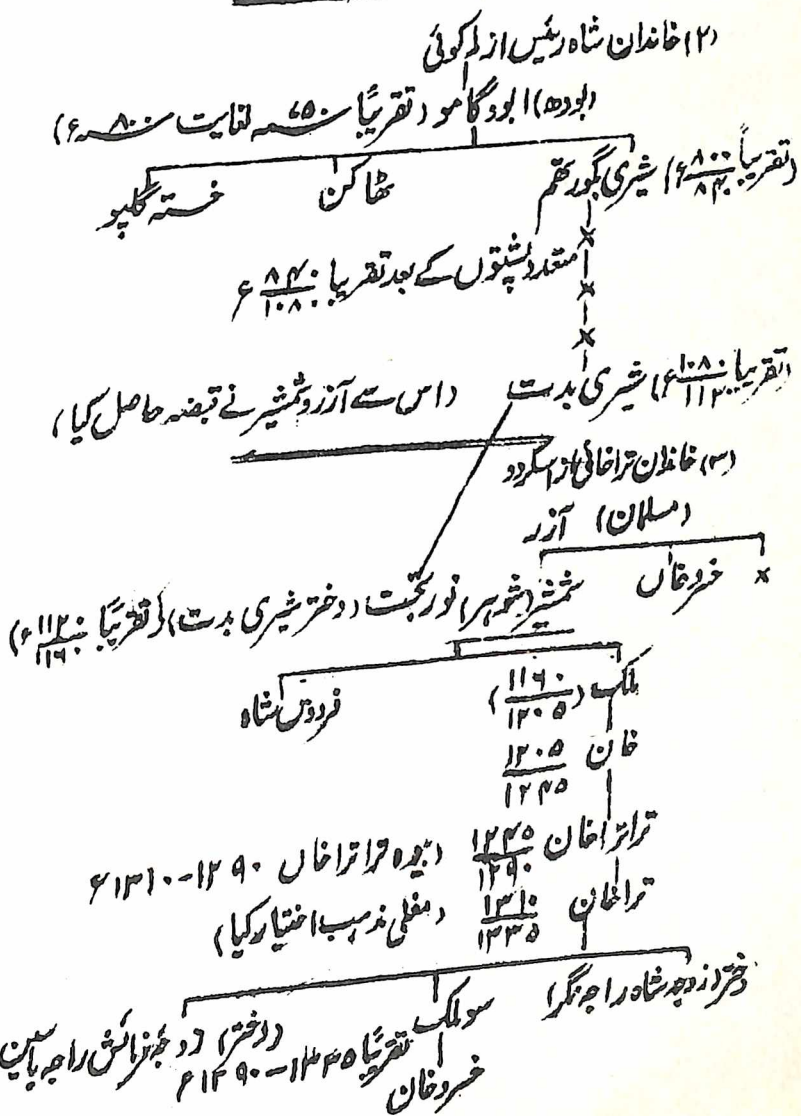 (۲) خاندان شاہ رئیس از لدکوئی
(بودھ) ابودگامو (تقریباً ۷۵۰ء لغایت ۸۰۰ء)
(تقریباً ۸۰۰/۸۴۰ء) شیری بگورتھم ٹھاکن خستہ گلپو
متعدد پشتوں کے بعد تقریباً ۸۴۰/۱۰۸۰ء
(تقریباً ۱۰۸۰/۱۱۲۰ء) شیری بدت (اس سے آزر و شمشیر نے قبضہ حاصل کیا)
(۳) خاندان تراخانی از اسکردو
(مسلمان) آزر
× خسروخاں شمشیر (شوہر) نوربخت (دختر شیری بدت) (تقریباً ۱۱۲۰/۱۱۶۰ء)
ملک (۱۱۶۰/۱۲۰۵) فردوس شاہ
خان ۱۲۰۵/۱۲۴۵
تراتراخان ۱۲۴۵/۱۲۹۰ (بیوہ تراتراخاں ۱۲۹۰-۱۳۱۰ء
تراخان ۱۳۱۰/۱۳۳۵ (مغلی مذہب اختیار کیا)
دختر (زوجہ شاہ راجہ نگر) سوملک تقریباً ۱۳۳۵-۱۳۹۰ء (دختر) زوجہ راجہ یاسین
خسروخان